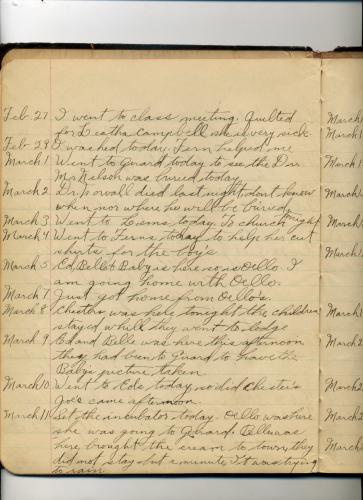 Feb. 27 I went to class meeting. Quilted
for Leatha Campbell she is very sick.
Feb 29 I washed today. Fern helped me
March 1 Went to Girard today to see the Drr.
Mr Nelson was buried today
March 2 Dr. Jorvall died last night dont know
when nor where he will be buried
March 3 Went to Lems today. To church tonight
March 4 Went to Ferns today to help her cut
shirts for the boys
March 5 Ed Belle & Baby as here so is Oello. I
am going home with Oello.
March 7 Just got home from Oello's.
March 8 Chester was here tonight the children
stayed while they went to lodge
March 9 Ed and Belle was here this afternoon
they had ben to Girard to have the
Baby's picture taken
March 10 Went to Eds today, so did Chester's
Joe's came afternoon
March 11 Set the incubator today. Oello was here
she was going to Girard. Belle was
here brought the cream to town, they
did not stay but a minute. It was trying
to rain
March
March
March
March
March
March
March 2
March 2
March 2
March